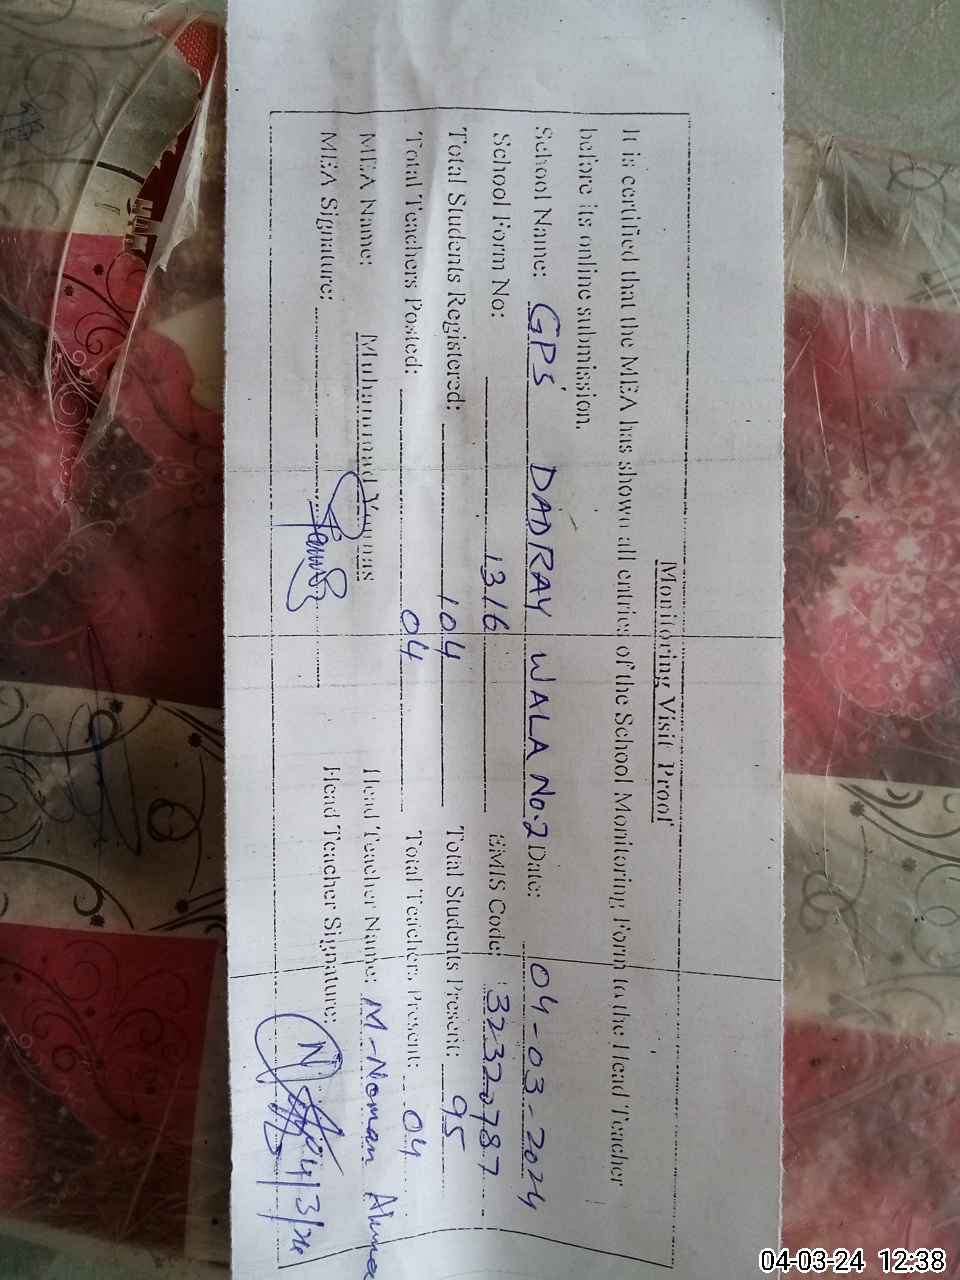 Monitoring Visit Proof
It is certified that the MEA has shown all entries of the School Monitoring Form to the Head Teacher
before its online submission.
School Name: GPS DADRAY WALA No.2 Date: 04-03-2024
School Form No: 1316 EMIS Code: 32320787
Total Students Registered: 104 Total Students Present: 95
Total Teachers Posted: 04 Total Teachers Present: 04
MEA Name: Muhammad Younas Head Teacher Name: M-Noman Ahmed
MEA Signature: Head Teacher Signature: 04/3/24
04-03-24 12:38